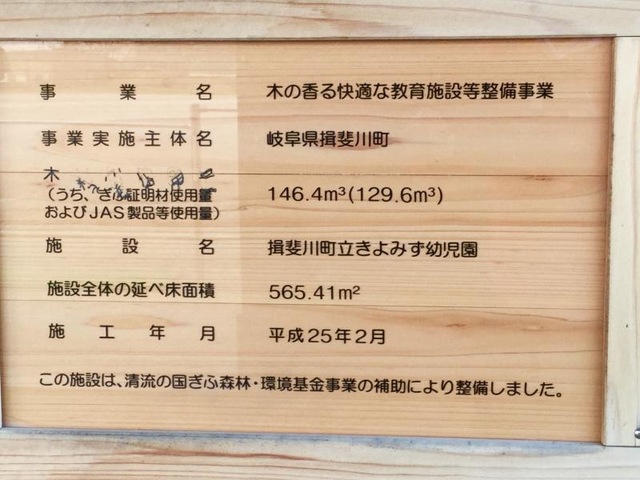 事業名 木の香る快適な教育施設等整備事業
事業実施主体名 岐阜県揖斐川町
木
(うち、ぎふ証明材使用量 146.4m³(129.6m³)
およびJAS製品等使用量)
施設名 揖斐川町立きよみず幼児園
施設全体の延べ床面積 565.41m²
施工年月 平成25年2月
この施設は、清流の国ぎふ森林・環境基金事業の補助により整備しました。